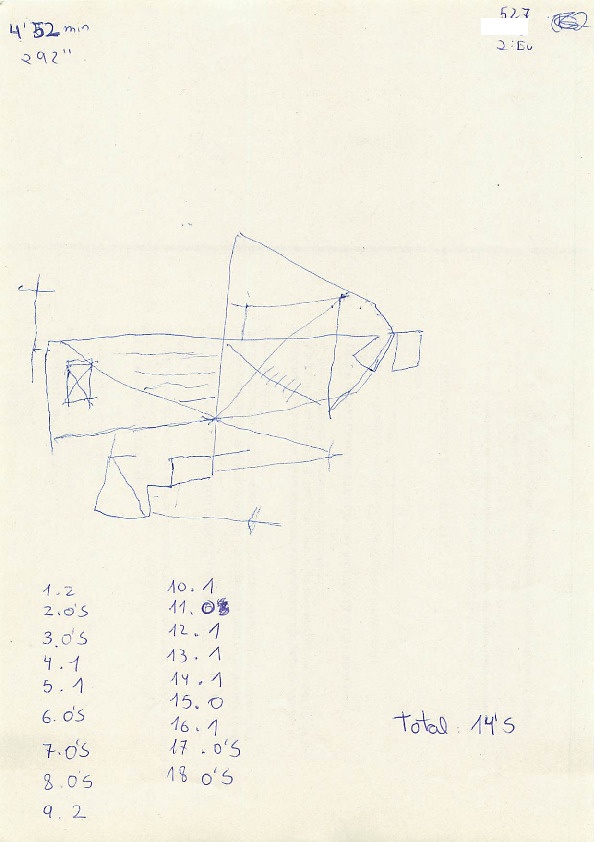 4'52 min
292"
527
2:Eu
1. 2
2. 0'5
3. 0'5
4. 1
5. 1
6. 0'5
7. 0'5
8. 0'5
9. 2
10. 1
11. 0
12. 1
13. 1
14. 1
15. 0
16. 1
17. 0'5
18 0'5
Total: 14'5